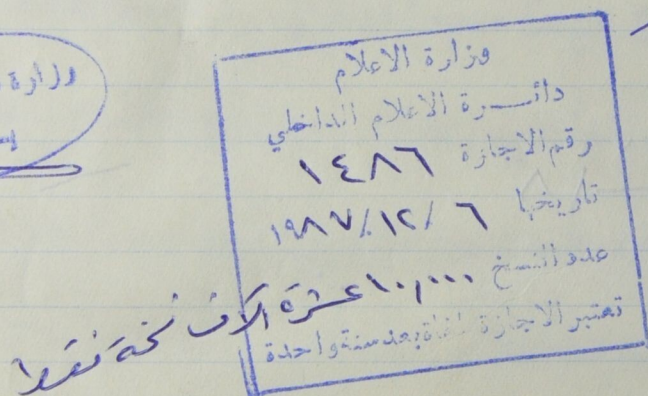 وزارة
وزارة الاعلام
دائـــرة الاعلام الداخلي
رقم الاجازة ١٤٨٦
تاريخها ٦ /١٢/ ١٩٨٧
عدد النسخ ١٠,٠٠٠ عشرة آلاف نسخة فقط
تعتبر الاجازة ملغاة بعد سنة واحدة